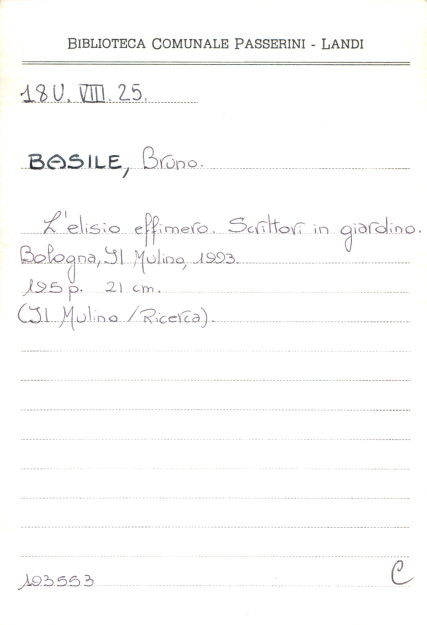 BIBLIOTECA COMUNALE PASSERINI - LANDI
18 U. VIII. 25.
BASILE, Bruno.
L'elisio effimero. Scrittori in giardino.
Bologna, Il Mulino, 1993.
195 p. 21 cm.
(Il Mulino / Ricerca).
193553
C